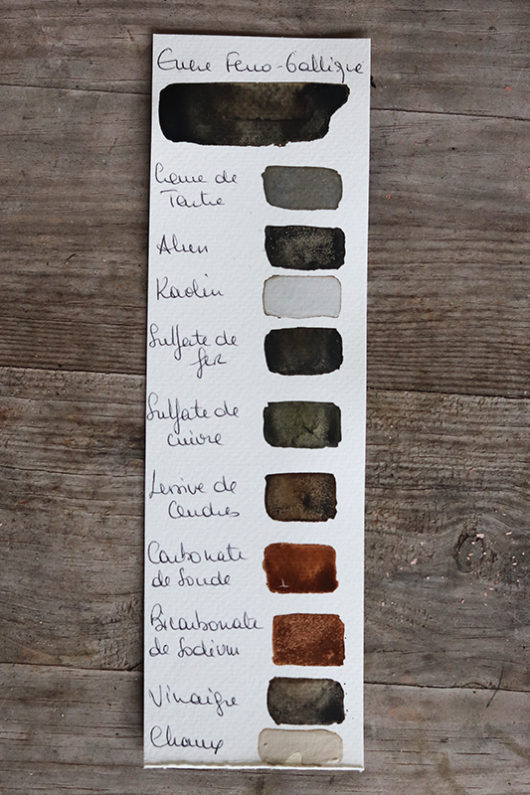 Encre Ferro-Gallique
Crème de
Tartre
Alun
Kaolin
Sulfate de
fer
Sulfate de
cuivre
Lessive de
Cendres
Carbonate
de Soude
Bicarbonate
de Sodium
Vinaigre
Chaux